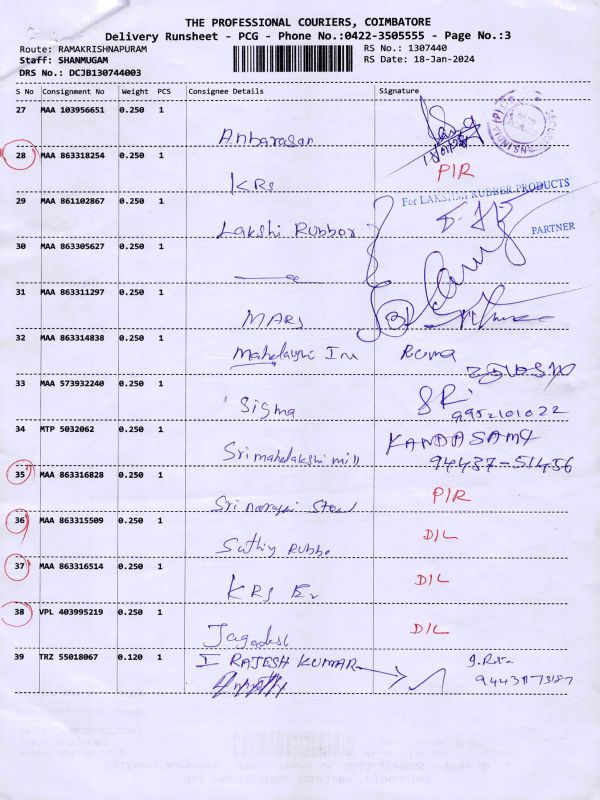 THE PROFESSIONAL COURIERS, COIMBATORE
Delivery Runsheet - PCG - Phone No.:0422-3505555 - Page No.:3
Route: RAMAKRISHNAPURAM RS No.: 1307440
Staff: SHANMUGAM RS Date: 18-Jan-2024
DRS No.: DCJB130744003
S No Consignment No Weight PCS Consignee Details Signature
27 MAA 103956651 0.250 1
Anbarasan
28 MAA 863318254 0.250 1 P/R
KRS
29 MAA 861102867 0.250 1 For LAKSHMI RUBBER PRODUCTS
Lakshi Rubber PARTNER
30 MAA 863305627 0.250 1
31 MAA 863311297 0.250 1
MARS
32 MAA 863314838 0.250 1
Ruma
33 MAA 573932240 0.250 1
Sigma SRi
9952101022
34 MTP 5032062 0.250 1 KANDASAMY
Srimahalakshimill 94437-51456
35 MAA 863316828 0.250 1 P/R
Sri narayni Steel
36 MAA 863315509 0.250 1 D/L
Sathiy Rubbe
37 MAA 863316514 0.250 1 D/L
KRS
38 VPL 403995219 0.250 1 D/L
Jagadesh
39 TRZ 55018067 0.120 1 I RAJESH KUMAR